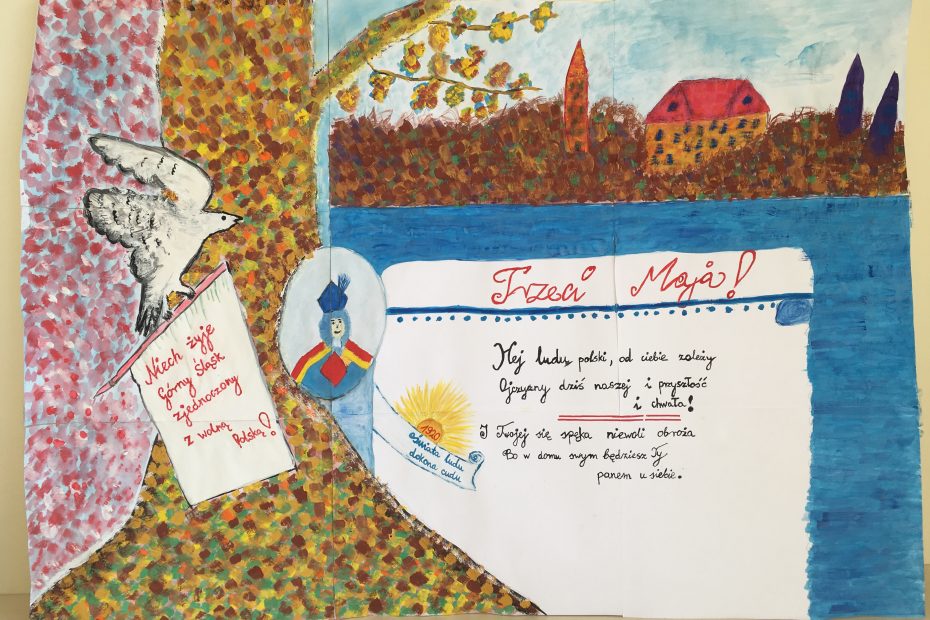 Trzeci Maja!
Niech żyje
Górny Śląsk
zjednoczony
z wolną
Polską!
Hej ludu polski, od ciebie zależy
Ojczyany dziś naszej i przyszłość
i chwała!
I Twojej się spęka niewoli obroża
Bo w domu swym będziesz Ty
panem u siebie.
1920
oświata ludu
dokona cudu